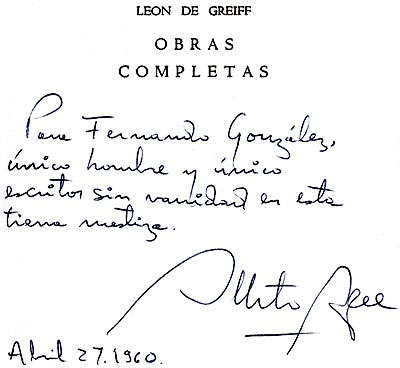 LEON DE GREIFF
OBRAS
COMPLETAS
Para Fernando González,
único hombre y único
escritor sin vanidad en esta
tierra mestiza.
Alberto
Abril 27.1960.